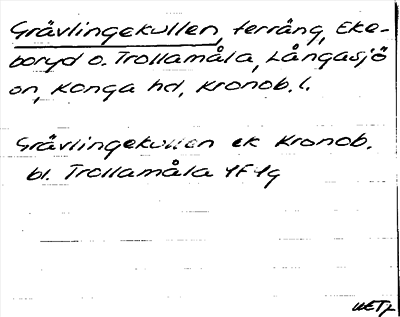 Grävlingekullen, terräng, Eke-
boryd o. Trollamåla, Långasjö
sn, Konga hd, Kronob. l.
Grävlingekullen ek Kronob.
bl. Trollamåla 4F 4g